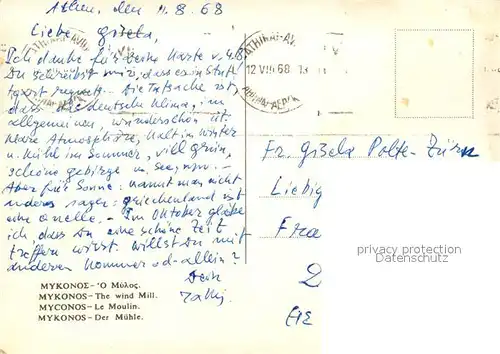 Athen, den 11.8.68
Liebe Gisela,
Ich danke für deine Karte v. 4.8
Du schreibst mir, dass es in Stutt
gart regnet. Die Tatsache ist,
dass das deutsche Klima, im
allgemeinen, wunderschön ist.
Klare Atmosphäre, kalt im winter
u. kühl im Sommer, viel grün,
schöne gebirge u. see, usw. -
Aber für Sonne: kannt man nicht
anderes sagen: griechenland ist
eine quelle. - Im Oktober glaube
ich dass Du eine schöne Zeit
treffen wirst. willst Du mit
anderen kommen od. allein?
Dein
ΜΥΚΟΝΟΣ - Ὁ Μύλος.
MYKONOS - The wind Mill.
MYCONOS - Le Moulin.
MYKONOS - Der Mühle.
12 VIII 68
Fr. Gisela Polte-Zürn
Liebig
privacy protection
Datenschutz